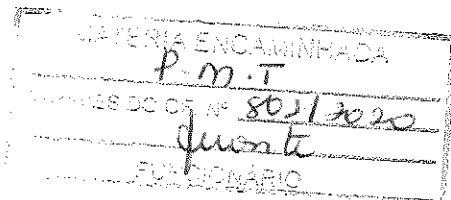 MATERIA ENCAMINHADA
P.M.T
ATRAVES DO OF. Nº 802/2020
FUNCIONARIO